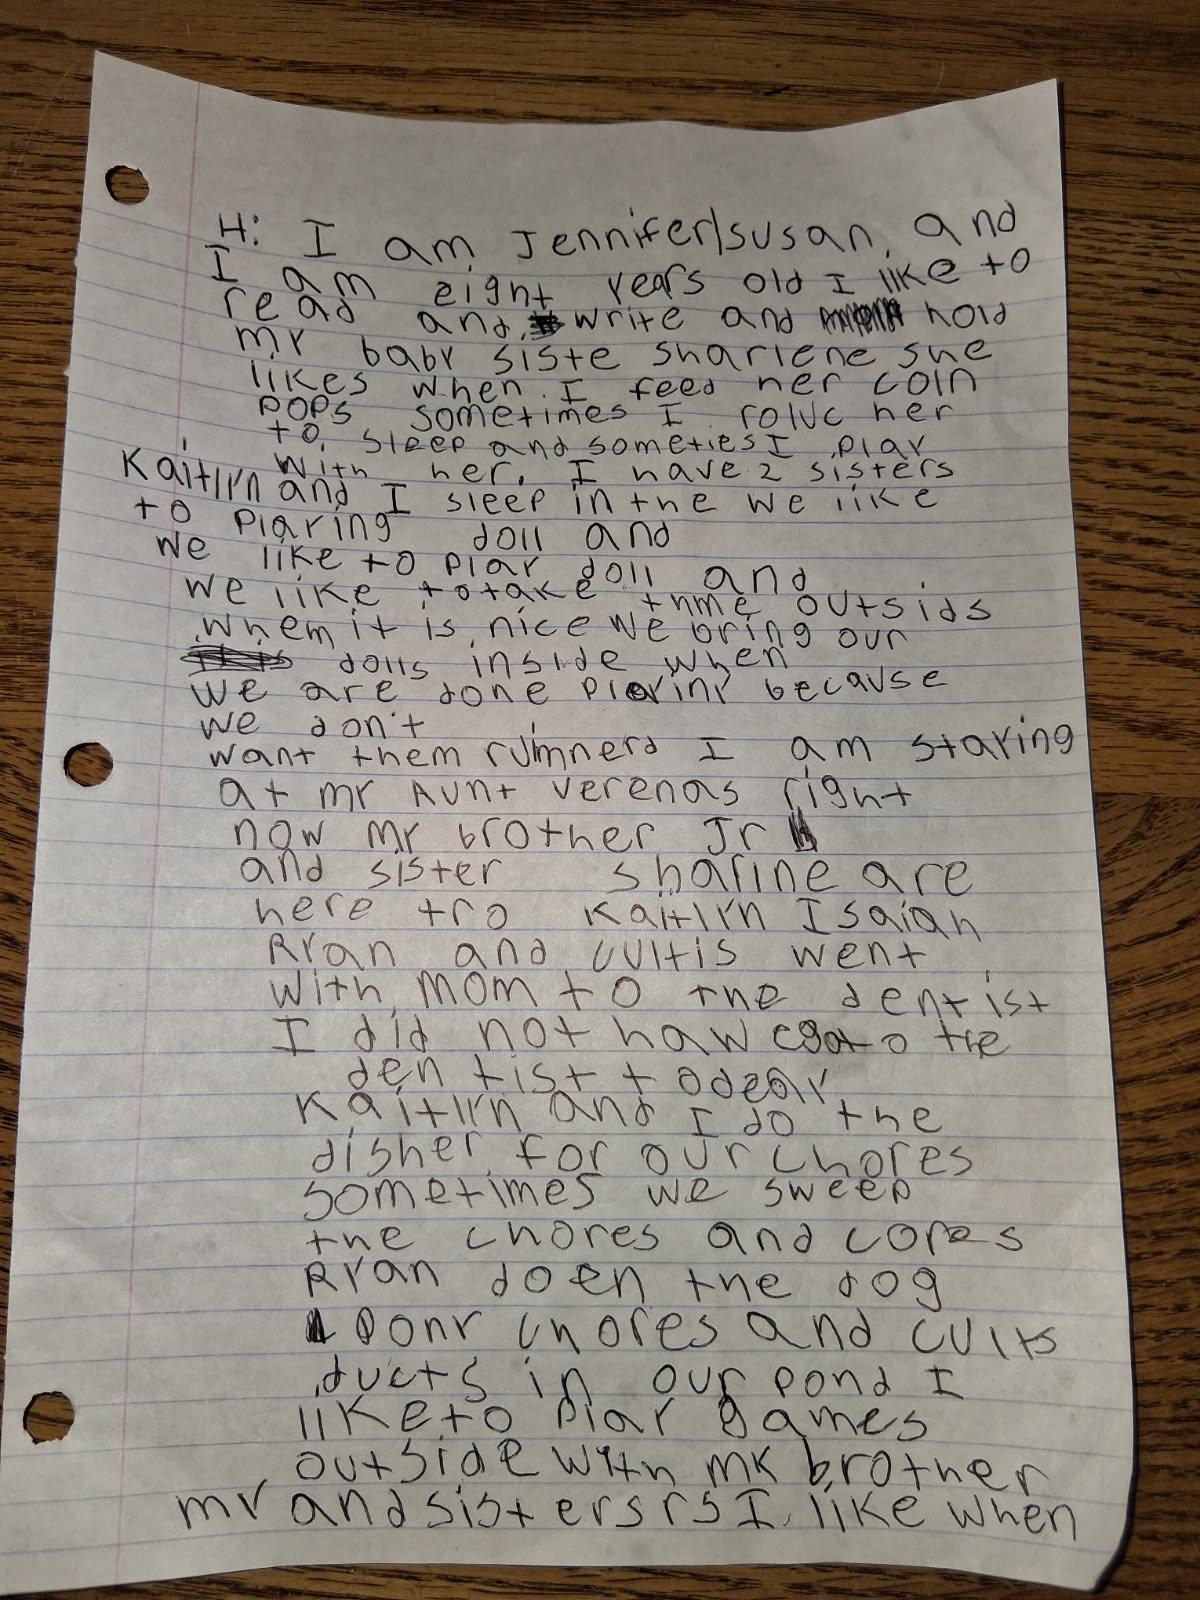 Hi I am Jennifer/susan, and
I am eight years old I like to
read and write and hold
my baby siste sharlene she
likes when I feed her coin
pops sometimes I her
to sleep and someties I play
with her. I have 2 sisters
Kaitlyn and I sleep in the we like
to playing doll and
we like to play doll and
we like to take thme outsids
when it is nice we bring our
dolls inside when
we are done because
we don't
want them I am staying
at my Aunt verenas right
now my brother Jr
and sister sharine are
here tro Kaitlyn Isaiah
Ryan and cultis went
with mom to the dentist
I did not to the
dentist
Kaitlyn and I do the
disher for our chores
sometimes we sweep
the chores and cores
Ryan doen the dog
pony chores and cults
ducts in our pond I
like to play games
outside with my brother
my and I like when